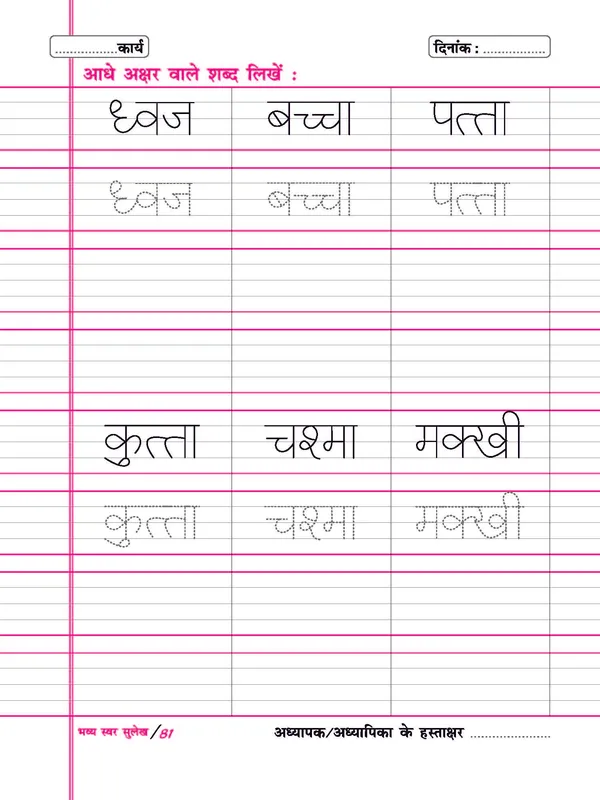 ..................कार्य दिनांक : ..................
आधे अक्षर वाले शब्द लिखें :
ध्वज बच्चा पत्ता
ध्वज बच्चा पत्ता
कुत्ता चश्मा मक्खी
कुत्ता चश्मा मक्खी
भव्य स्वर सुलेख/81 अध्यापक/अध्यापिका के हस्ताक्षर ..................